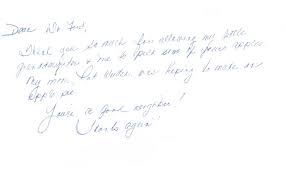 Dear Mr Ford,
Thank you so much for allowing my little
granddaughter & me to pick some of your apples
My mom, Pat are hoping to make an
apple pie.
You're a good neighbor!
Thanks again!